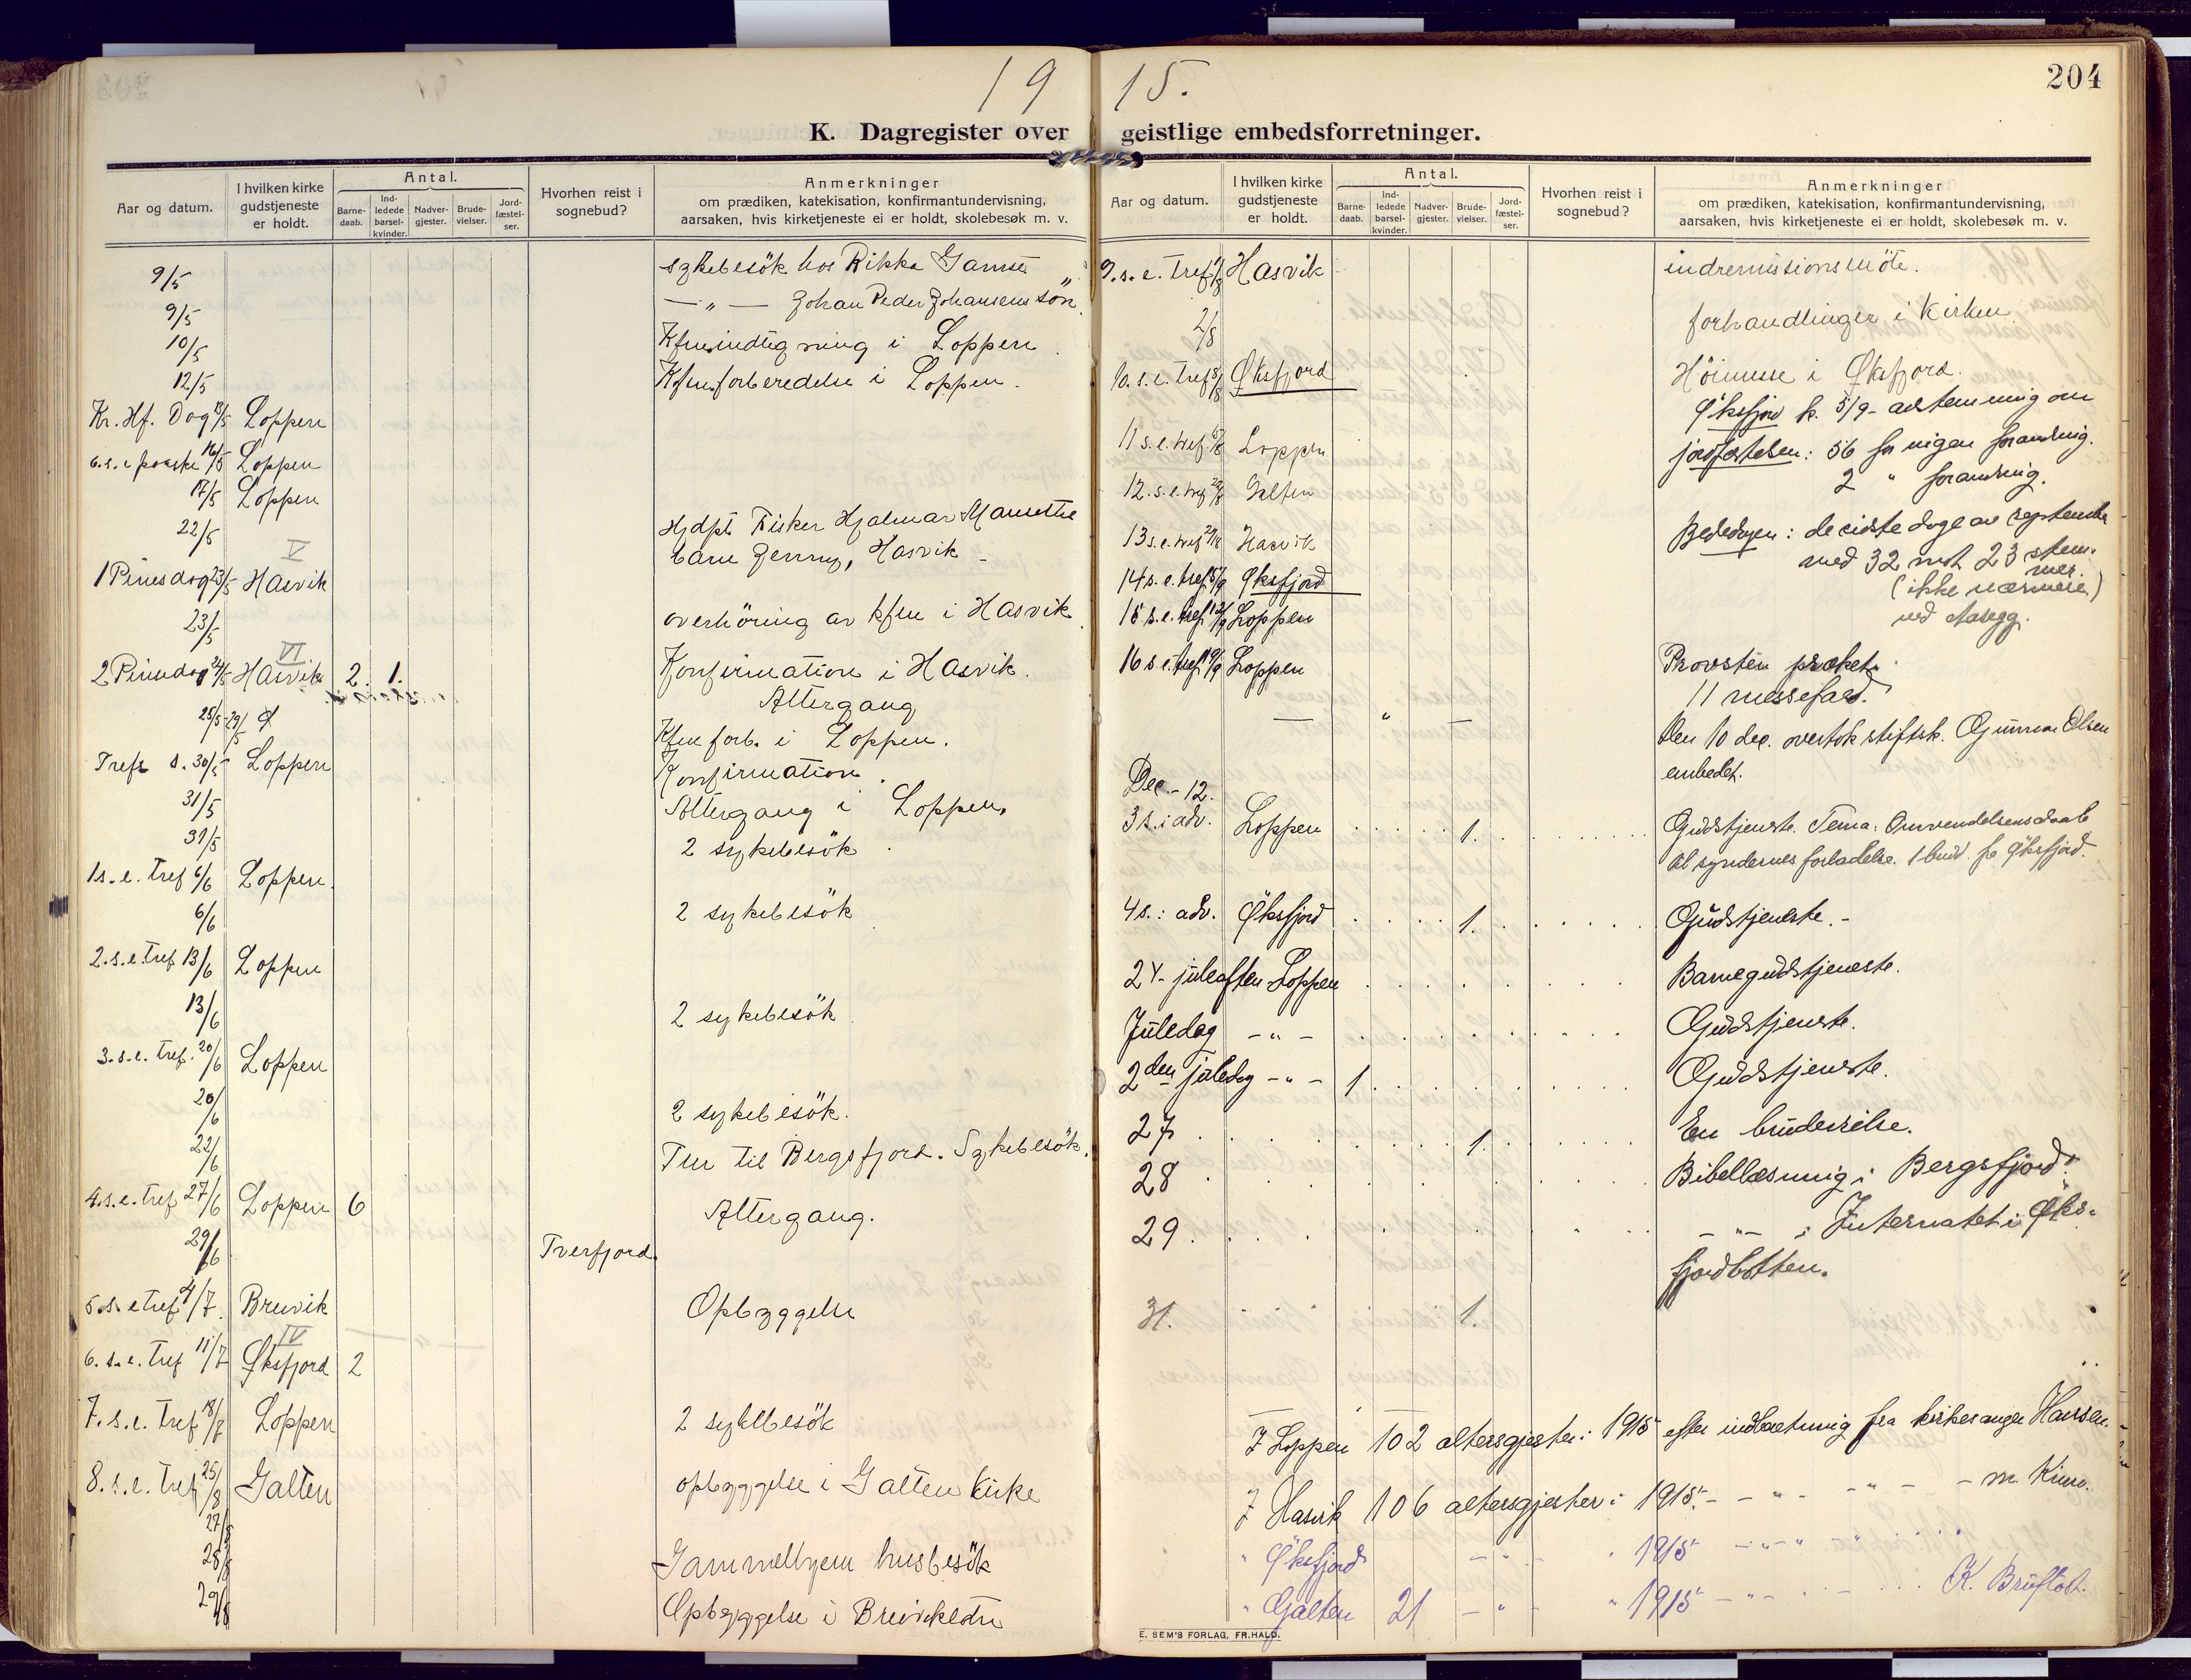 19 15.
204
K. Dagregister over geistlige embedsforretninger.
Aar og datum.
I hvilken kirke gudstjeneste er holdt.
Antal.
Barne-daab.
Ind-ledede barsel-kvinder.
Nadver-gjester.
Brude-vielser.
Jord-fæstel-ser.
Hvorhen reist i sognebud?
Anmerkninger
om prædiken, katekisation, konfirmantundervisning,
aarsaken, hvis kirketjeneste ei er holdt, skolebesøk m. v.
9/5 sykebesök hos Rikka
9/5 — „ — Johan Peder Johansens sön
10/5 i Loppen
12/5 Kfm.forberedelse i Loppen.
Kr. Hf. Dag 13/5 Loppen
6. s. e paaske 16/5 Loppen
17/5 Loppen
22/5 Hjdpt Fisker Hjalmar
barn Jenny, Hasvik
V
1 Pinsdag 23/5 Hasvik
23/5 overhöring av kfm i Hasvik
VI
2 Pinsdag 24/5 Hasvik 2. 1. Konfirmation i Hasvik.
Altergang
25/5-29/5 Kfm forb. i Loppen.
Trefs s. 30/5 Loppen Konfirmation.
31/5 Altergang i Loppen,
31/5 2 sykebesök
1 s. e. Tref 6/6 Loppen.
6/6 2 sykebesök
2. s. e. tref 13/6 Loppen
13/6 2 sykebesök
3. s. e. tref. 20/6 Loppen
20/6 2 sykebesök.
22/6 Tur til Bergsfjord. Sykebesök.
4. s. e. tref 27/6 Loppen 6 Altergang.
29/6 Tverfjord.
5. s. e tref 4/7 Breivik Opbyggelse
IV
6. s. e. tref 11/7 Øksfjord 2
7. s. e. tref 18/7 Loppen 2 sykebesök
8. s. e. tref 25/8 Galten opbyggelse i Galten Kirke
27/8
28/8 Gammelhjem husbesök
29/8 Opbyggelse i
K. Dagregister over geistlige embedsforretninger.
Aar og datum.
I hvilken kirke gudstjeneste er holdt.
Antal.
Barne-daab.
Ind-ledede barsel-kvinder.
Nadver-gjester.
Brude-vielser.
Jord-fæstel-ser.
Hvorhen reist i sognebud?
Anmerkninger
om prædiken, katekisation, konfirmantundervisning,
aarsaken, hvis kirketjeneste ei er holdt, skolebesøk m. v.
9. s. e. tref 1/8 Hasvik indremissionsmöte.
2/8 forhandlinger i Kirken
10. s. e. tref 8/8 Øksfjord Höimesse i Øksfjord.
Øksfjord k. 5/9 - avstemning om
11 s. e. tref. Loppen jordfæstelsen: 56 for ingen forandring.
12. s. e. tref Galten 2 " forandring.
13 s. e. tref Hasvik Bededagen: de sidste dage av september
med 32 mot 23 stem-
mer.
14 s. e. tref 5/9 Øksfjord (ikke nærmere)
15 s. e. tref 12/9 Loppen ved
16 s. e. tref 19/9 Loppen Provsten præket.
11 messefald.
— „ — Den 10 dec. overtok stiftsk. Gunnar Olsen
embedet.
Dec. - 12.
3 s. i adv. Loppen 1. Gudstjeneste. Tema: Omvendelsensdaab
til syndernes forladelse. 1 brud. fra Øksfjord.
4 s. i adv. Øksfjord 1. Gudstjeneste. -
24 - juleaften Loppen Barnegudstjeneste.
Juledag - „ - Gudstjeneste.
2den juledag - „ - 1. Gudstjeneste.
27 1. En brudevielse.
28 Bibellæsning i Bergsfjord.
29 - „ - i Internatet i Øks-
fjordbotten.
31. 1.
I Loppen 102 altersgjester i 1915 efter indberetning fra kirkesanger Hansen.
I Hasvik 106 altersgjester i 1915. - - „ - - „ - - m.
" Øksfjord - „ - " 1915 - „ - „ - „
" Galten 21 - „ - " 1915 - „ - K.
E. SEM'S FORLAG, FR.HALD.